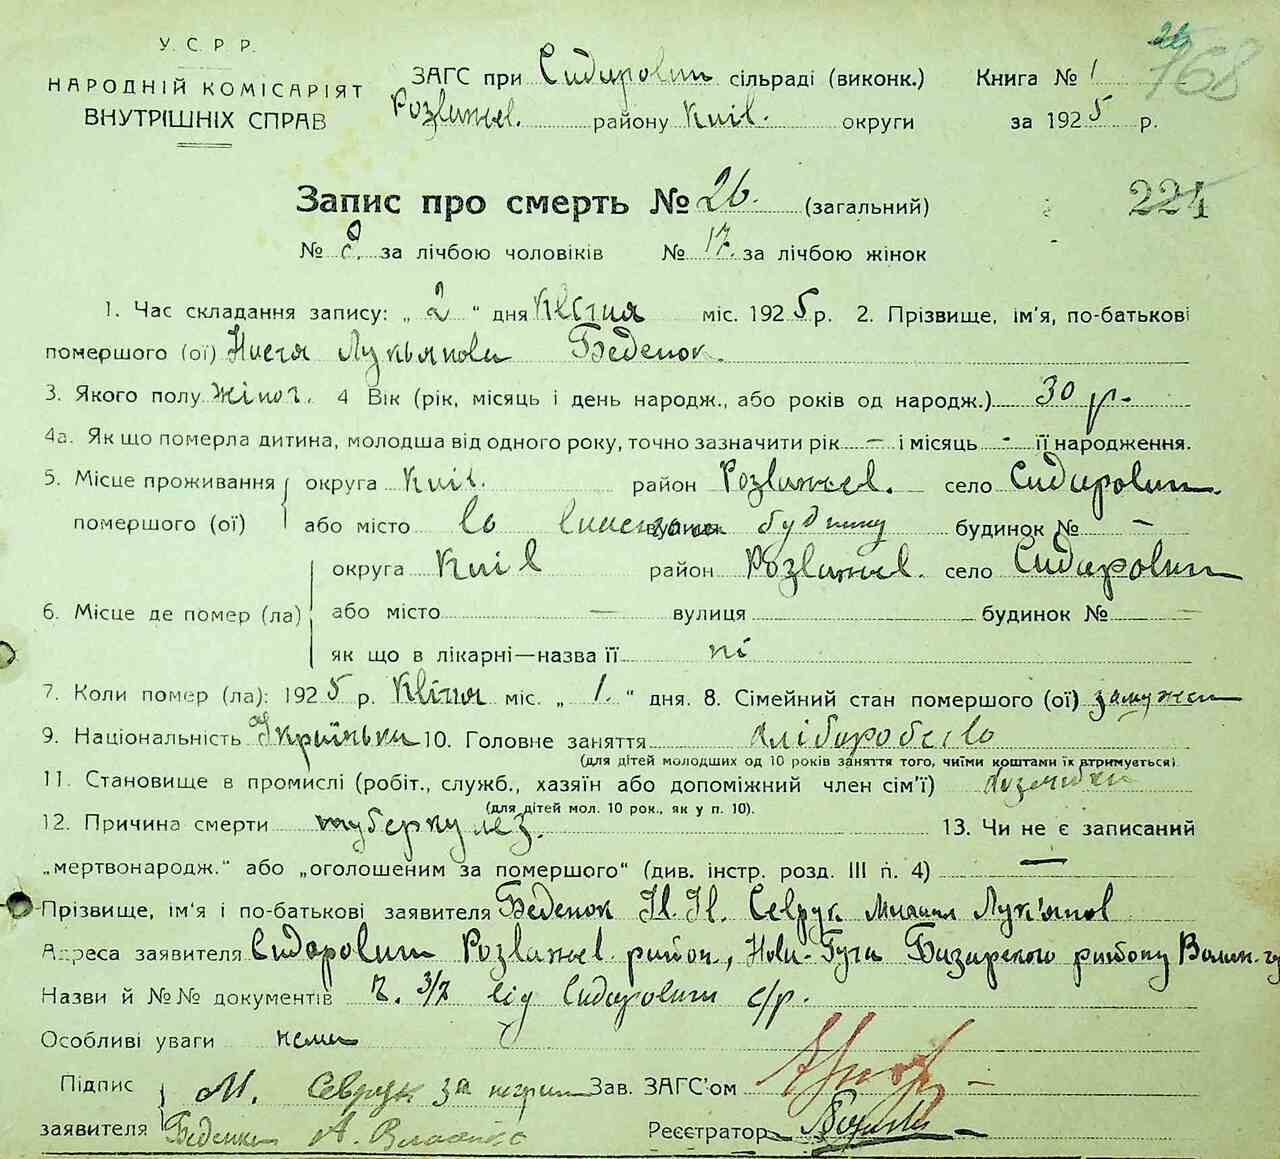 У. С. Р. Р.
НАРОДНІЙ КОМІСАРІЯТ
ВНУТРІШНІХ СПРАВ
ЗАГС при Сидорович сільраді (виконк.)
Розважев. району Київ. округи
Книга № 1
за 1925 р.
26
168
Запис про смерть № 26. (загальний)
224
№ 8. за лічбою чоловіків № 17. за лічбою жінок
1. Час складання запису: „ 2 “ дня Квітня міс. 1925 р. 2. Прізвище, ім'я, по-батькові
помершого (ої) Настя Лукьянова Беденок.
3. Якого полу жіноч. 4 Вік (рік, місяць і день народж., або років од народж.) 30 р.
4а. Як що померла дитина, молодша від одного року, точно зазначити рік — і місяць - її народження.
5. Місце проживання округа Київ. район Розважев. село Сидорович.
помершого (ої) або місто во вулиця будинку будинок № —
округа Київ район Розважев. село Сидорович
6. Місце де помер (ла) або місто — вулиця будинок № —
як що в лікарні—назва її ні
7. Коли помер (ла): 1925 р. Квітня міс. „ 1. “ дня. 8. Сімейний стан помершого (ої) замужня
9. Національність Українка 10. Головне заняття хліборобство
(для дітей молодших од 10 років заняття того, чиїми коштами їх втримується)
11. Становище в промислі (робіт., служб., хазяїн або допоміжний член сім'ї) хозяйка
(для дітей мол. 10 рок., як у п. 10).
12. Причина смерти туберкулез. 13. Чи не є записаний
„мертвонародж.“ або „оголошеним за помершого“ (див. інстр. розд. III п. 4) —
Прізвище, ім'я і по-батькові заявителя Беденок Н. Н. Севрук Михаил Лук'янов
Адреса заявителя Сидорович Розважев. район, Нова-Гута Базарского району Волин. гу
Назви й №№ документів ч. 3/2 від Сидорович с/р.
Особливі уваги нема
Підпис М. Севрук за Зав. ЗАГС'ом
заявителя Беденка А. Реєстратор